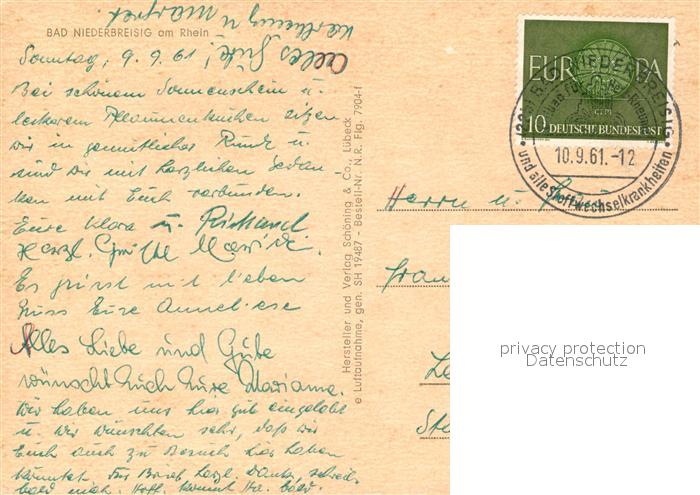 BAD NIEDERBREISIG am Rhein
Sonntag, 9.9.61! Alles Gute!
Bei schönem Sonnenschein u.
leckerem Pflaumenkuchen sitzen
wir in gemütlicher Runde u.
sind Sie mit herzlichen Gedan-
ken mit Euch verbunden.
Eure Klara u. Richard
Herzl. Grüße Maria
Es grüsst mit lieben
Gruss Eure Anneliese
Alles Liebe und Gute
wünscht Euch Eure Marianne.
Wir haben uns hier gut eingelebt
u. wir wünschten sehr, daß wir
Euch auch zu Besuch hier haben
könntet. Für Brief herzl. Dank, schreib
bald mal. Hoff. kommt Ihr bald.
Hersteller und Verlag Schöning & Co., Lübeck
e Luftaufnahme, gen. SH 19487 - Bestell-Nr. N.R. Flg. 7904-f
EUROPA
10 DEUTSCHE BUNDESPOST
NIEDERBREISIG
10.9.61.-12
und alle Stoffwechselkrankheiten
Herrn u.
privacy protection
Datenschutz